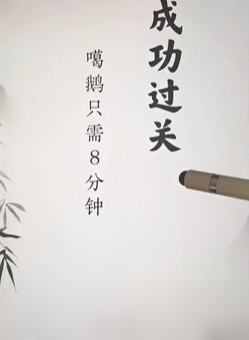 成功过关
噶鹅只需8分钟